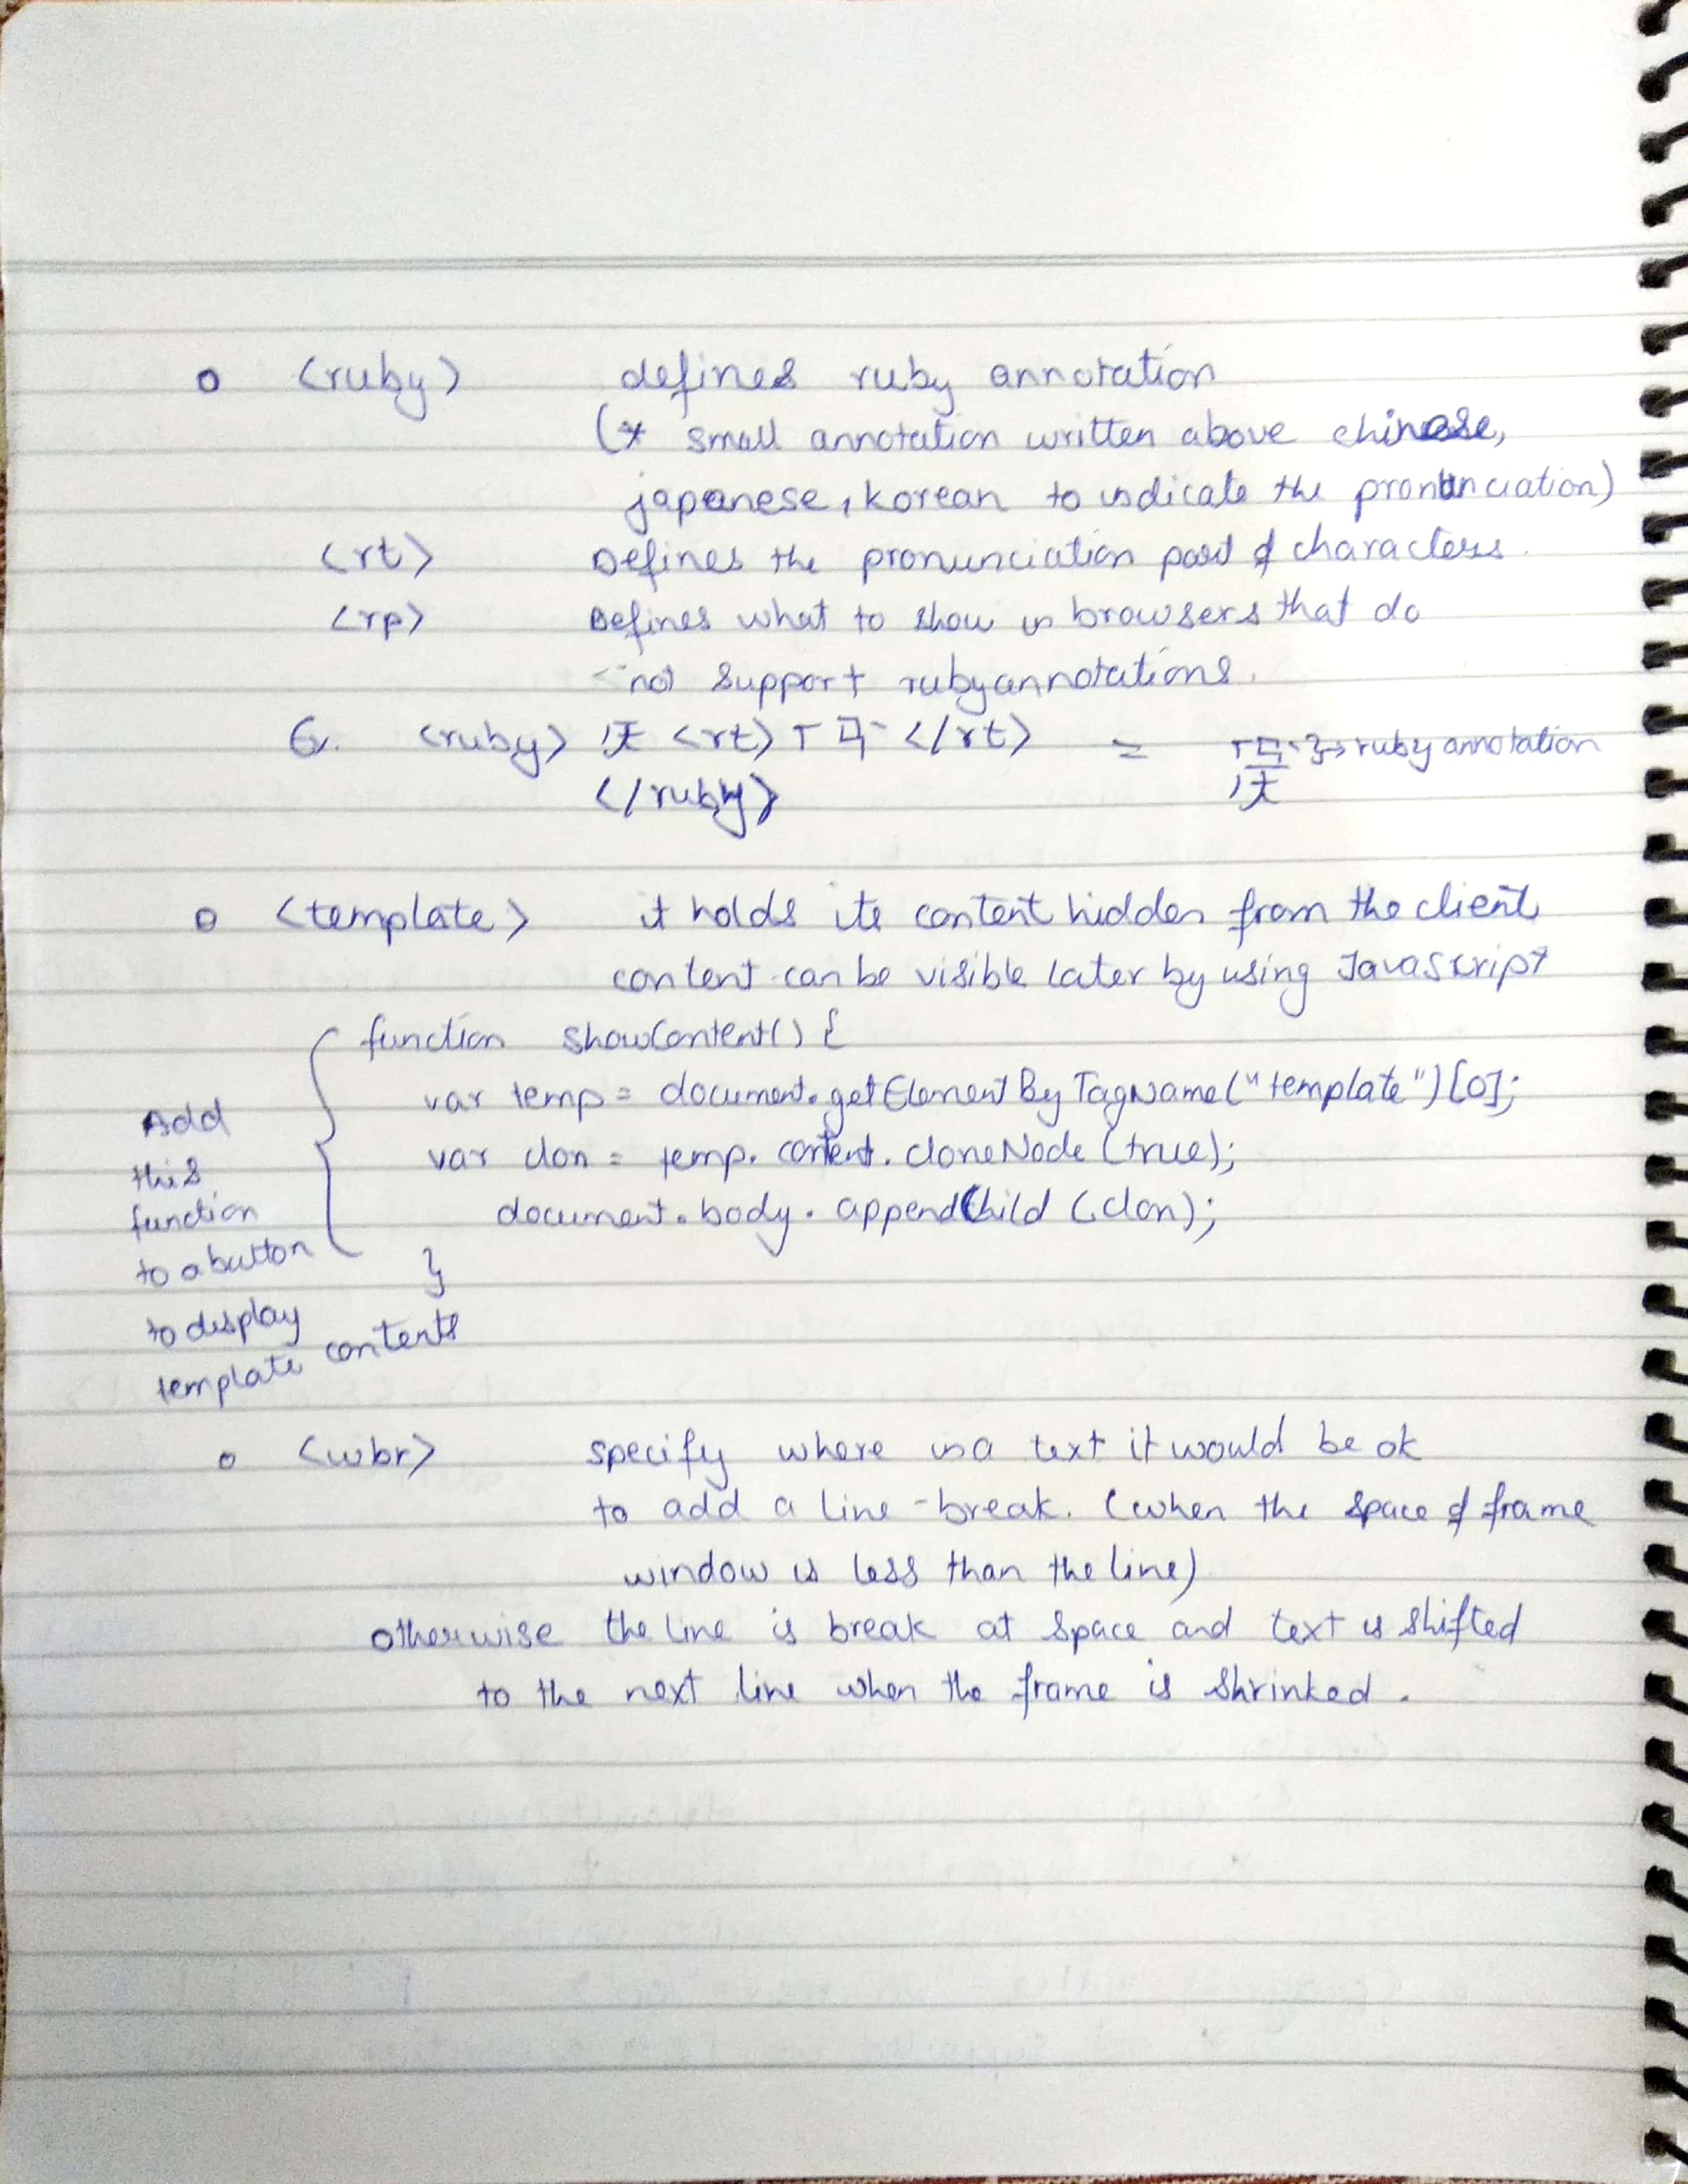 o <ruby> defines ruby annotation
(* small annotation written above chinese,
japanese, korean to indicate the pronunciation)
<rt> Defines the pronunciation part of characters.
<rp> Defines what to show in browsers that do
not support ruby annotations.
Ex. <ruby> <rt> </rt> = } → ruby annotation
</ruby>
o <template> it holds its content hidden from the client
content can be visible later by using Javascript
function showContent() {
var temp = document.getElementByTagName("template")[0];
var clon = temp.content.cloneNode(true);
document.body.appendChild(clon);
}
Add
this
function
to a button
to display
template contents
o <wbr> specify where in a text it would be ok
to add a line-break. (when the space of frame
window is less than the line)
otherwise the line is break at space and text is shifted
to the next line when the frame is shrinked.